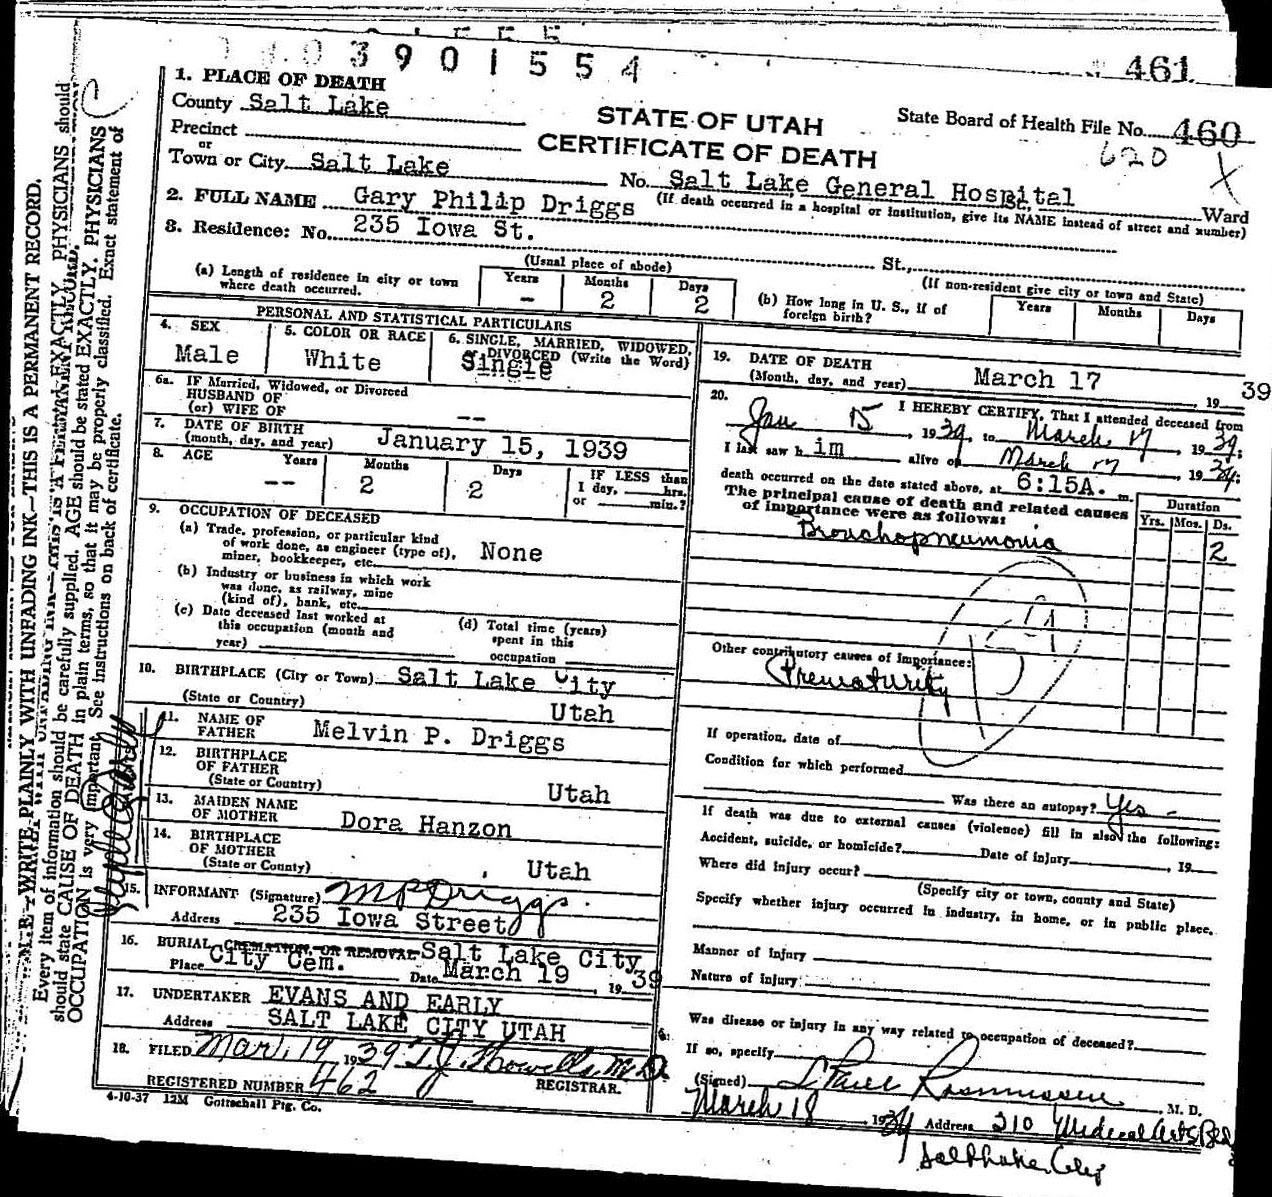 3901554
461
1. PLACE OF DEATH
County Salt Lake
STATE OF UTAH
CERTIFICATE OF DEATH
State Board of Health File No. 460
620 X
Precinct
or
Town or City Salt Lake
No. Salt Lake General Hospital
St., Ward
2. FULL NAME Gary Philip Driggs
(If death occurred in a hospital or institution, give its NAME instead of street and number)
3. Residence: No. 235 Iowa St.
St.,
(Usual place of abode)
(If non-resident give city or town and State)
(a) Length of residence in city or town
where death occurred.
Years Months Days
- 2 2
(b) How long in U. S., if of
foreign birth?
Years Months Days
PERSONAL AND STATISTICAL PARTICULARS
4. SEX
Male
5. COLOR OR RACE
White
6. SINGLE, MARRIED, WIDOWED,
DIVORCED (Write the Word)
Single
6a. IF Married, Widowed, or Divorced
HUSBAND OF
(or) WIFE OF
--
7. DATE OF BIRTH
(month, day, and year) January 15, 1939
8. AGE Years Months Days
-- 2 2
IF LESS than
1 day, hrs.
or min.?
9. OCCUPATION OF DECEASED
(a) Trade, profession, or particular kind
of work done, as engineer (type of),
miner, bookkeeper, etc. None
(b) Industry or business in which work
was done, as railway, mine
(kind of), bank, etc.
(c) Date deceased last worked at
this occupation (month and
year)
(d) Total time (years)
spent in this
occupation
10. BIRTHPLACE (City or Town) Salt Lake City
(State or Country) Utah
11. NAME OF
FATHER Melvin P. Driggs
12. BIRTHPLACE
OF FATHER
(State or Country) Utah
13. MAIDEN NAME
OF MOTHER Dora Hanzon
14. BIRTHPLACE
OF MOTHER
(State or County) Utah
15. INFORMANT (Signature) M P Driggs.
Address 235 Iowa Street
16. BURIAL, CREMATION, OR REMOVAL Salt Lake City
Place City Cem. Date March 19, 1939
17. UNDERTAKER EVANS AND EARLY
Address SALT LAKE CITY UTAH
18. FILED Mar. 19, 1939 T. J. Howells, M.D.
REGISTRAR.
REGISTERED NUMBER 462
4-10-37 12M Gottschall Ptg. Co.
19. DATE OF DEATH
(Month, day, and year) March 17 1939
20. I HEREBY CERTIFY, That I attended deceased from
Jan 15, 1939, to March 17, 1939;
I last saw him alive on March 17, 1939;
death occurred on the date stated above, at 6:15A. m.
The principal cause of death and related causes
of importance were as follows:
Duration
Yrs. Mos. Ds.
Bronchopneumonia 2
159
Other contributory causes of importance:
Prematurity
If operation, date of
Condition for which performed
Was there an autopsy? Yes -
If death was due to external causes (violence) fill in also the following:
Accident, suicide, or homicide? Date of injury 19
Where did injury occur?
(Specify city or town, county and State)
Specify whether injury occurred in industry, in home, or in public place.
Manner of injury
Nature of injury
Was disease or injury in any way related to occupation of deceased?
If so, specify
(Signed) Rasmussen M. D.
March 18 1939 Address 210 Medical Arts Bldg
Salt Lake City
WRITE PLAINLY WITH UNFADING INK—THIS IS A PERMANENT RECORD.
Every item of information should be carefully supplied. AGE should be stated EXACTLY. PHYSICIANS
should state CAUSE OF DEATH in plain terms, so that it may be properly classified. Exact statement of
OCCUPATION is very important. See instructions on back of certificate.